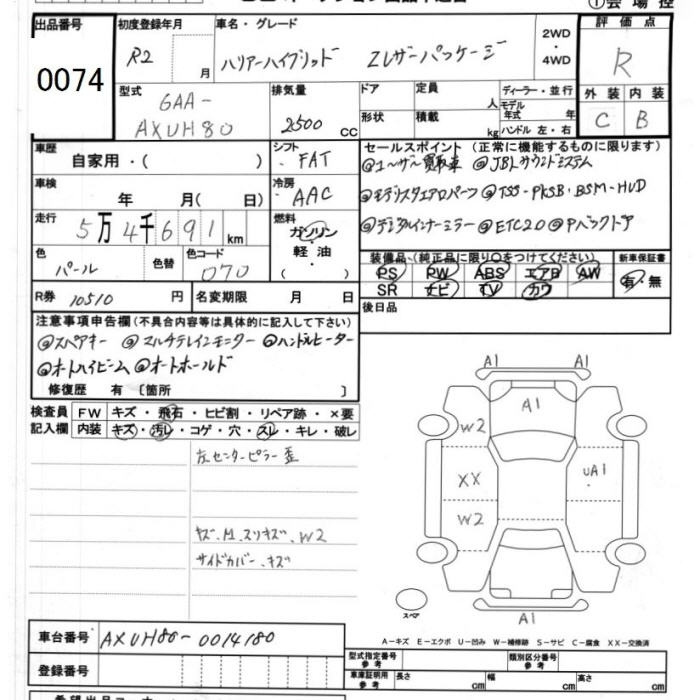 ①会場控
出品番号 初度登録年月 車名・グレード 評価点
0074
R2 月 ハリアーハイブリッド Zレザーパッケージ 2WD・4WD R
型式 排気量 ドア 定員 ディーラー・並行 外装 内装
6AA-AXUH80 2500 cc 形状 積載 人 kg モデル年式 年 ハンドル 左・右 C B
車歴 シフト セールスポイント (正常に機能するものに限ります)
自家用・( ) FAT @ユーザー買取車 @JBLサウンドシステム
車検 冷房
年 月( 日) AAC @モデリスタエアロパーツ @TSS-PKSB・BSM・HUD
走行 燃料
5万4千691km ガソリン・軽油・( ) @デジタルインナーミラー @ETC2.0 @Pバックドア
色 色替 色コード
パール 070
装備品、(純正品に限り○をつけてください) 新車保証書
PS PW ABS エアB AW 有・無
SR ナビ TV カワ
R券 10510 円 名変期限 月 日 後日品
注意事項申告欄 (不具合内容等は具体的に記入して下さい)
@スペアキー @マルチテレインモニター @ハンドルヒーター
@オートハイビーム @オートホールド
修復歴 有 〔箇所 〕
検査員記入欄 FW キズ・飛石・ヒビ割・リペア跡・×要
内装 キズ・汚レ・コゲ・穴・スレ・キレ・破レ
左センターピラー歪
キズ、M、スリキズ、W2
サイドカバー、キズ
A1 A1
A1
W2
XX UA1
W2
スペア
A1
A-キズ E-エクボ U-凹み W-補修跡 S-サビ C-腐食 XX-交換済
車台番号 AXUH80-0014180
型式指定番号 参考 類別区分番号 参考
登録番号 車庫証明用 参考 長さ cm 幅 cm 高さ cm